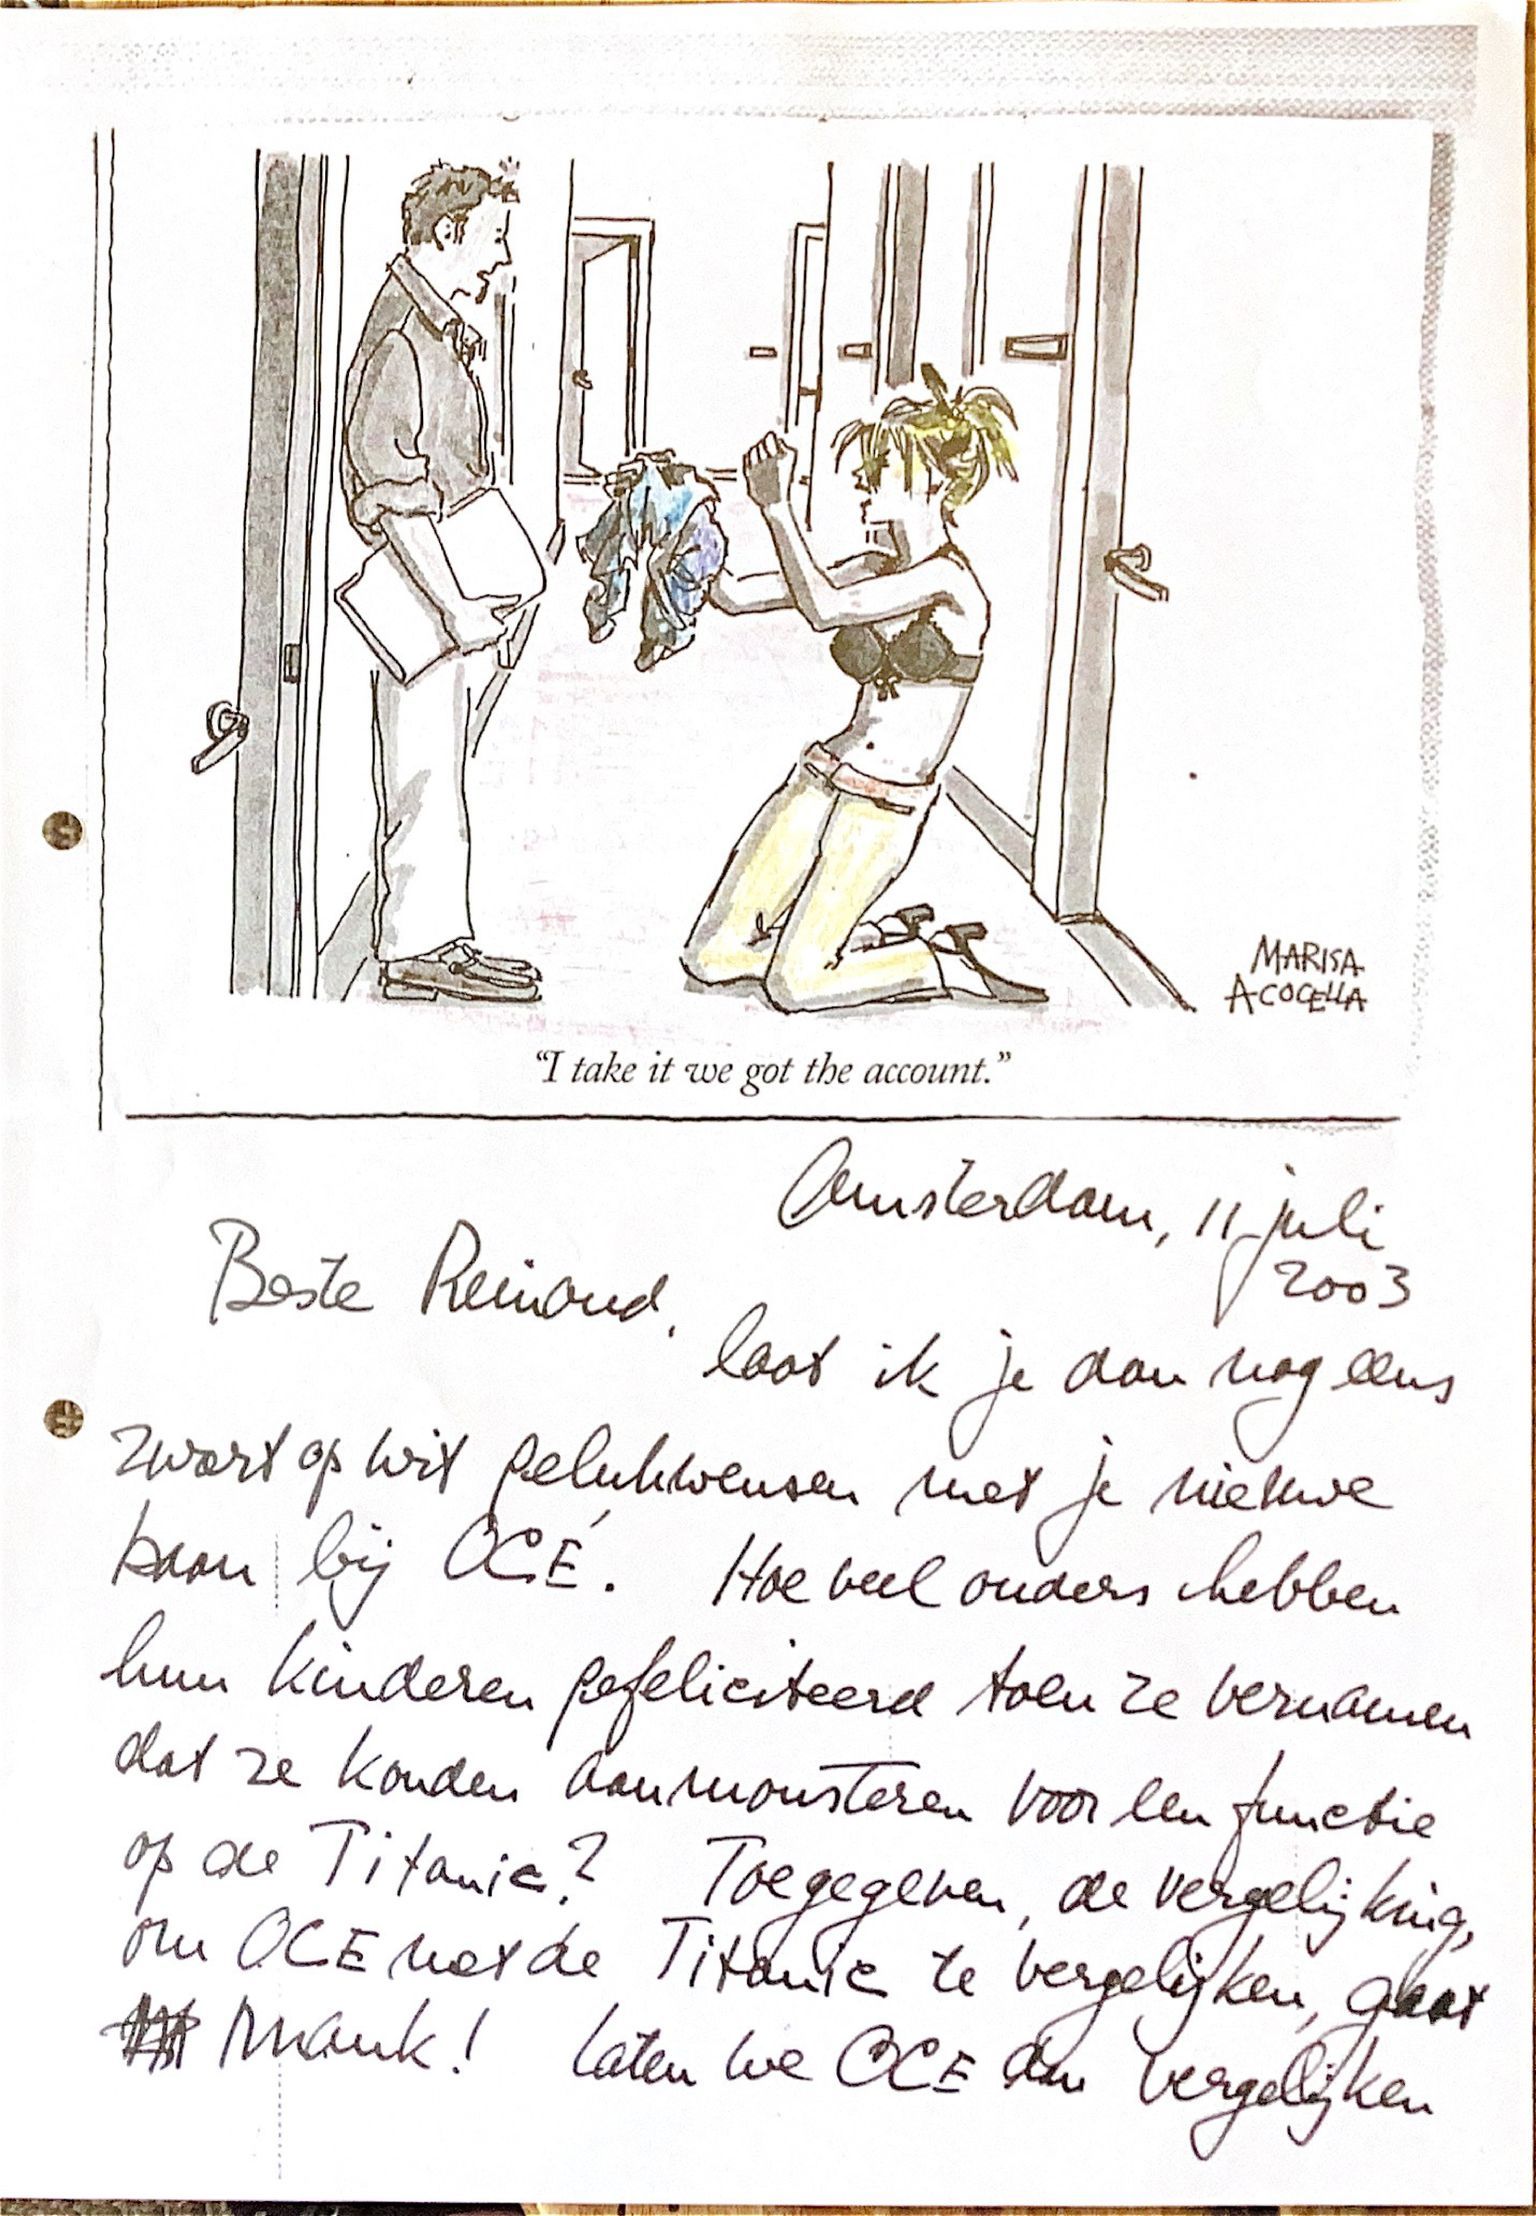 MARISA
ACOCELLA
"I take it we got the account."
Amsterdam, 11 juli
2003
Beste Reinoud,
laat ik je dan nog eens
zwart op wit gelukwensen met je nieuwe
baan bij OCÉ. Hoeveel ouders hebben
hun kinderen gefeliciteerd toen ze vernamen
dat ze konden aanmonsteren voor een functie
op de Titanic? Toegegeven, de vergelijking,
om OCE met de Titanic te vergelijken, gaat
mank! Laten we OCE dan vergelijken